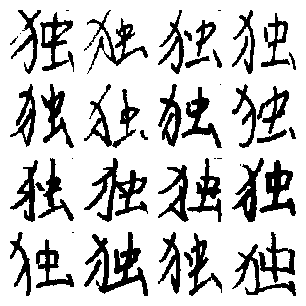 独独独独
独独独独
独独独独
独独独独